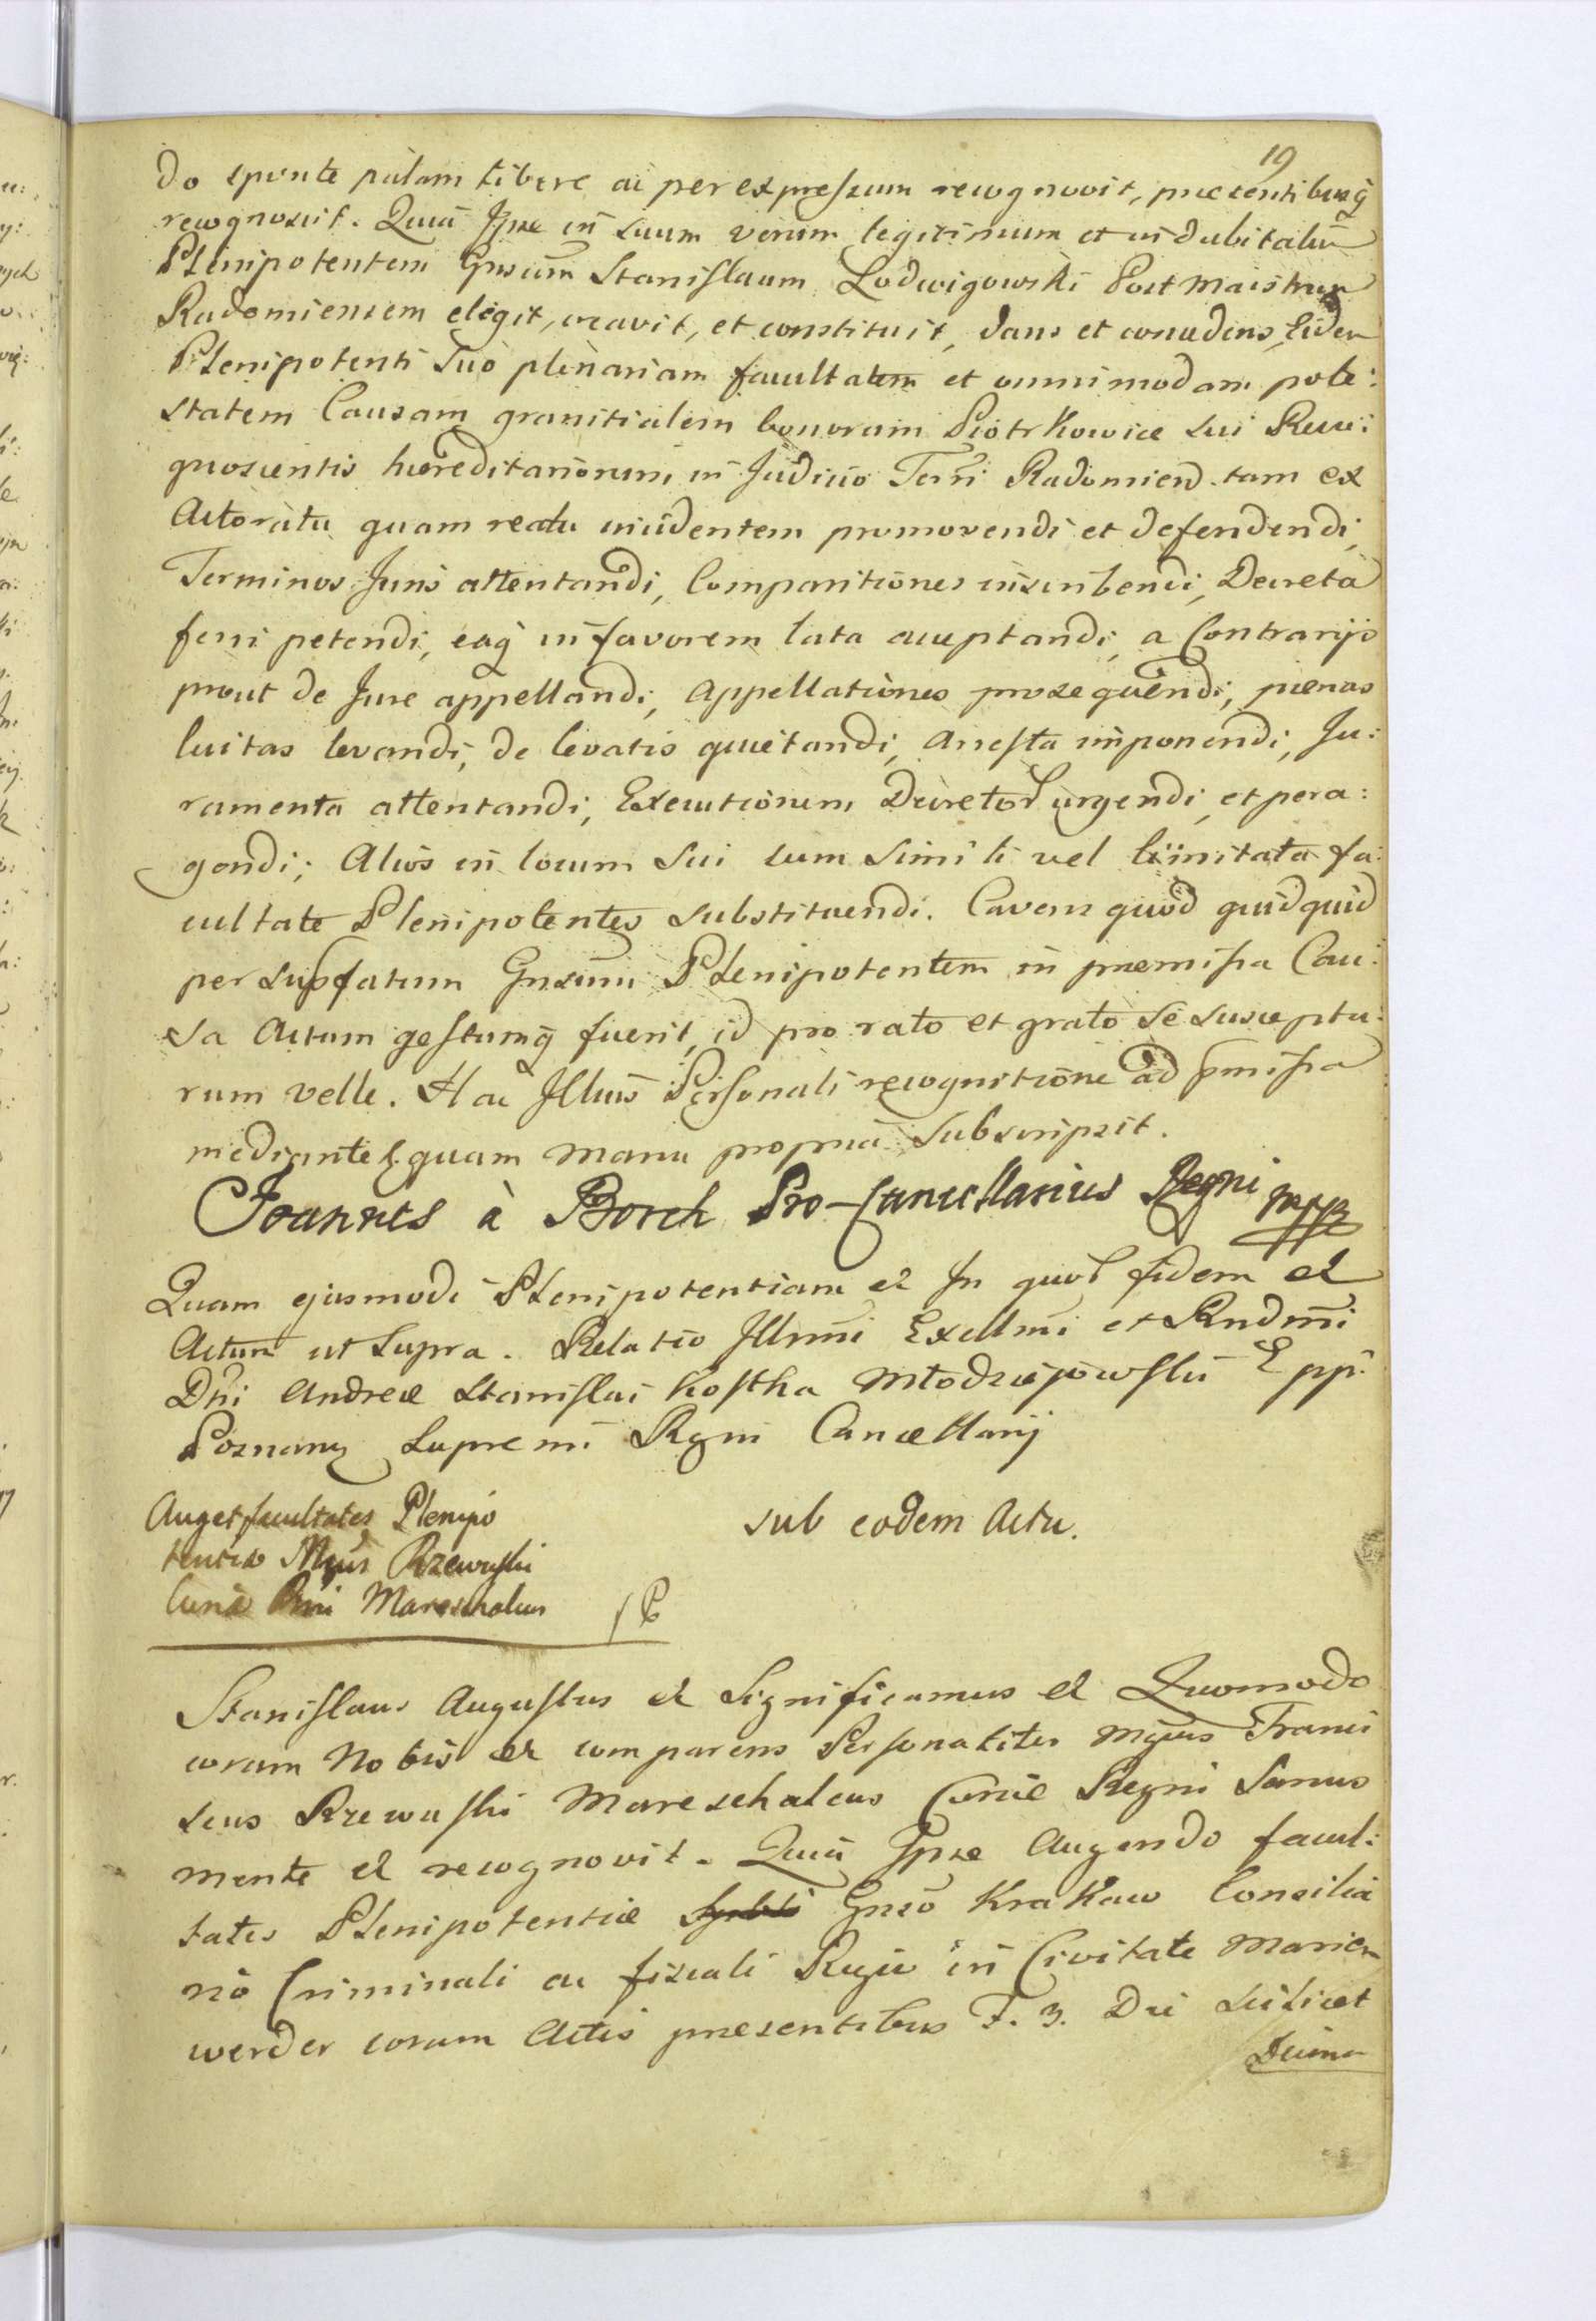 19
do sponte palam libere ac per expressum recognovit, præsentibusq̃
recognoscit. Quia Ipse in suum verum legitimum et indubitatũ
Plenipotentem Gnsum Stanislaum Lodwigowski Postmaistrum
Radomiensem elegit, creavit, et constituit, dans et concedens, eidem
Plenipotenti suo plenariam facultatem et omnimodam pote:
statem Causam granitialem bonorum Piotrkowice sui Reco:
gnoscentis hæreditariorum in Judicio Terri Radomien. tam ex
Actoratu quam reatu incidentem promovendi et defendendi,
Terminos Juris attentandi, Comparitiones inscribendi, Decreta
ferri petendi, eaq̃ in favorem lata acceptandi, a Contrarijs
prout de Jure appellandi, Appellationes prosequendi, pœnas
luitas levandi, de levatis quietandi, Arresta imponendi, Ju:
ramenta attentandi, Executionem Decretor urgendi, et pera:
gendi; Alios in locum sui cum simili vel limitata fa:
cultate Plenipotentes substituendi. Cavens quod quidquid
per supfatum Gnsum Plenipotentem in præmissa Cau:
sa Actum gestumq̃ fuerit, id pro rato et grato se susceptu:
rum velle. Hac Illius Personali recognitione ad pmissa
mediante quam manu propria subscripsit.
Joannes à Borch Pro-Cancellarius Regni mpp
Quam ejusmodi Plenipotentiam et In quor fidem et
Actum ut supra. Relatio Illmi Exellmi et Rndmi
Dni Andreæ Stanislai Kostka Młodziejowski Epp.
Poznany Supremi Rgni Cancellarij
Auget facultates Plenipo
tentiæ Mgus Rzewuski
Curiæ Rni Mareschalcus
sub eodem Actu.
Stanislaus Augustus et Significamus et Quomodo
coram Nobis et comparens Personaliter Mgus Franci
scus Rzewuski Mareschalcus Curiæ Regni Sanus
mente et recognovit. Quia Ipse Augendo facul:
tates Plenipotentiæ Gnso Krakaw Consilia
rio Criminali ac fiscali Regio in Civitate Marien
werder coram Actis præsentibus F. 3. Die scilicet
Decima